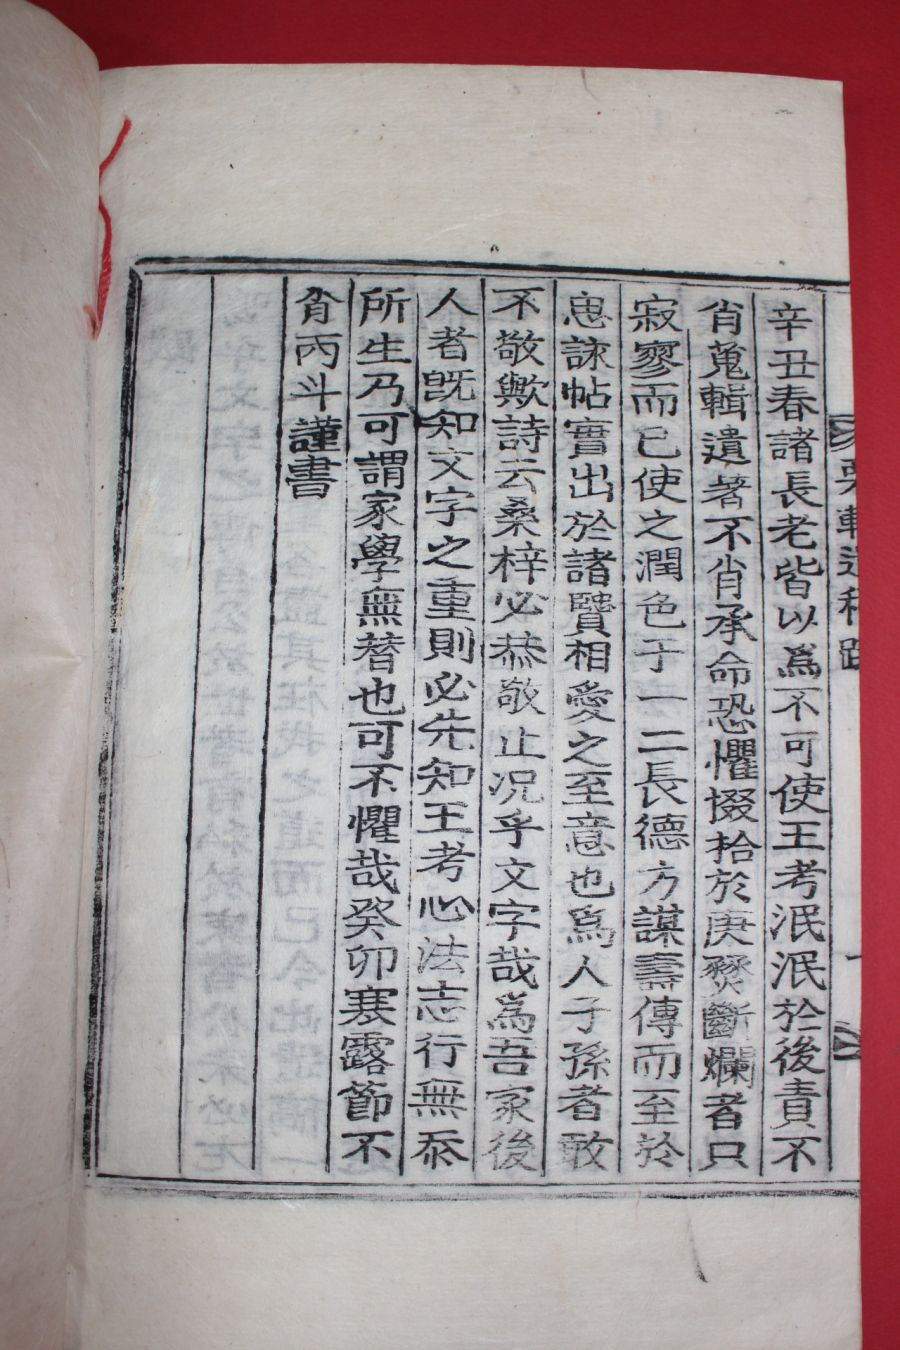 栗軒遺稿跋
辛丑春諸長老皆以爲不可使王考泯泯於後責不
肖蒐輯遺著不肖承命恐懼掇拾於庚燹斷爛者只
寂寥而已使之潤色于一二長德方謀壽傳而至於
恵諫帖實出於諸賢相愛之至意也爲人子孫者敢
不敬歟詩云桑梓必恭敬止况乎文字哉爲吾家後
人者旣知文字之重則必先知王考心法志行無忝
所生乃可謂家學無替也可不懼哉癸卯寒露節不
肖丙斗謹書